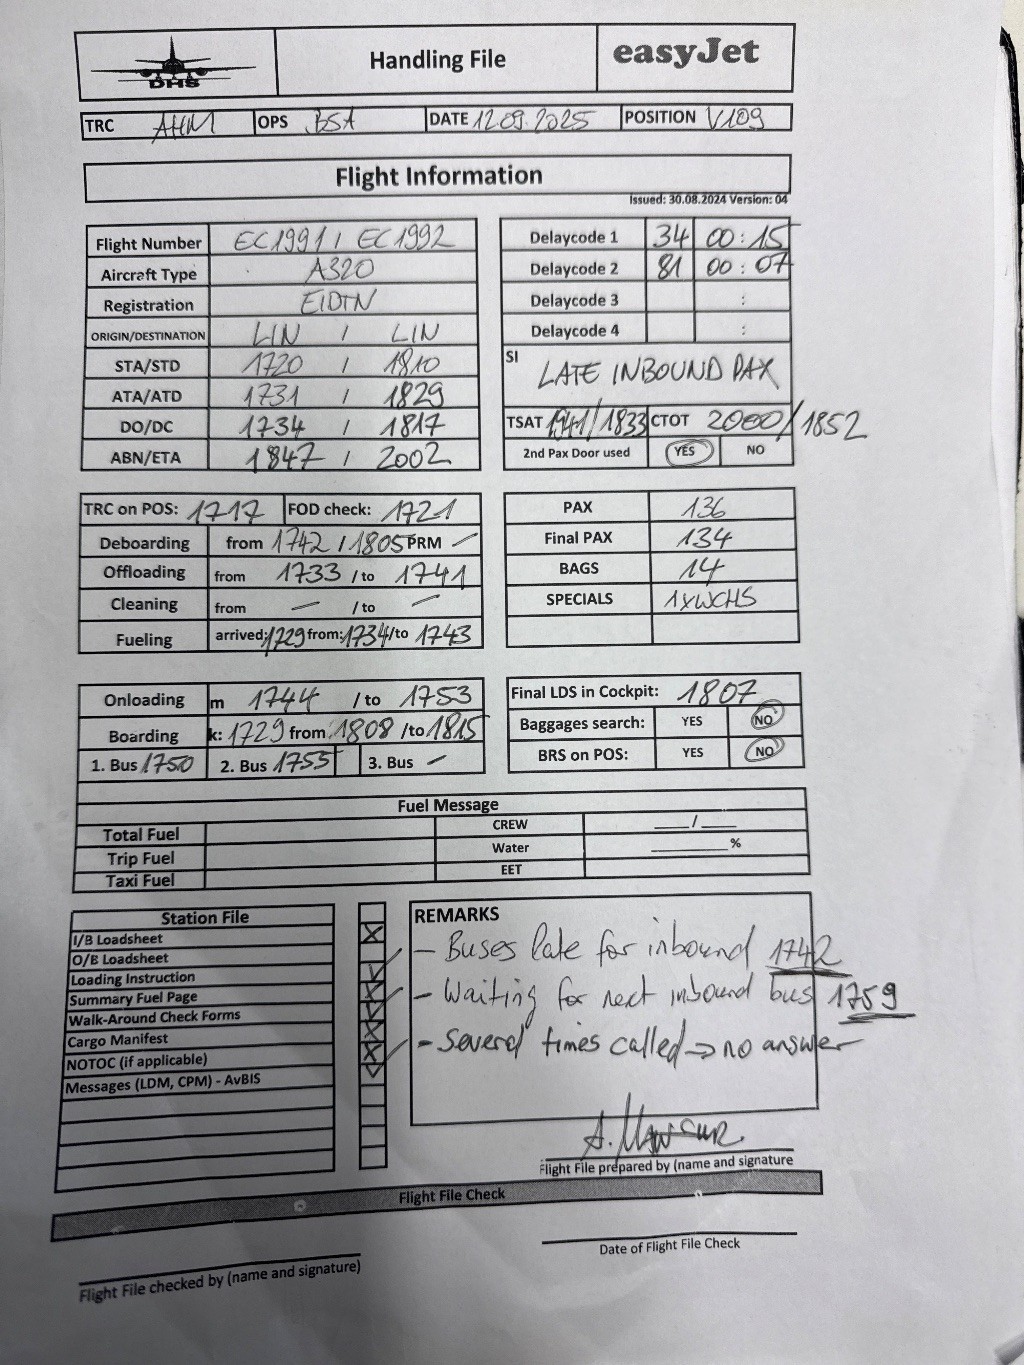 DHS
Handling File
easyJet
TRC AHM OPS BSA DATE 12.09.2025 POSITION V109
Flight Information
Issued: 30.08.2024 Version: 04
Flight Number EC1991 / EC1992
Aircraft Type A320
Registration EIDTN
ORIGIN/DESTINATION LIN / LIN
STA/STD 1720 / 1810
ATA/ATD 1731 / 1829
DO/DC 1734 / 1817
ABN/ETA 1847 / 2002
Delaycode 1 34 00:15
Delaycode 2 81 00:07
Delaycode 3 :
Delaycode 4 :
SI LATE INBOUND PAX
TSAT 1941/1833 CTOT 2000/1852
2nd Pax Door used YES NO
TRC on POS: 1717 FOD check: 1721
Deboarding from 1742 / 1805 PRM –
Offloading from 1733 / to 1741
Cleaning from – / to –
Fueling arrived: 1729 from: 1734/to 1743
PAX 136
Final PAX 134
BAGS 14
SPECIALS 1xWCHS
Onloading m 1744 / to 1753
Boarding k: 1729 from: 1808 /to 1815
1. Bus 1750 2. Bus 1755 3. Bus –
Final LDS in Cockpit: 1807
Baggages search: YES NO
BRS on POS: YES NO
Fuel Message
Total Fuel CREW __/__
Trip Fuel Water ____%
Taxi Fuel EET
Station File
I/B Loadsheet
O/B Loadsheet
Loading Instruction
Summary Fuel Page
Walk-Around Check Forms
Cargo Manifest
NOTOC (if applicable)
Messages (LDM, CPM) - AvBIS
REMARKS
– Buses late for inbound 1742
– Waiting for next inbound bus 1759
– Several times called → no answer
A. Mansur
Flight File prepared by (name and signature
Flight File Check
Flight File checked by (name and signature)
Date of Flight File Check